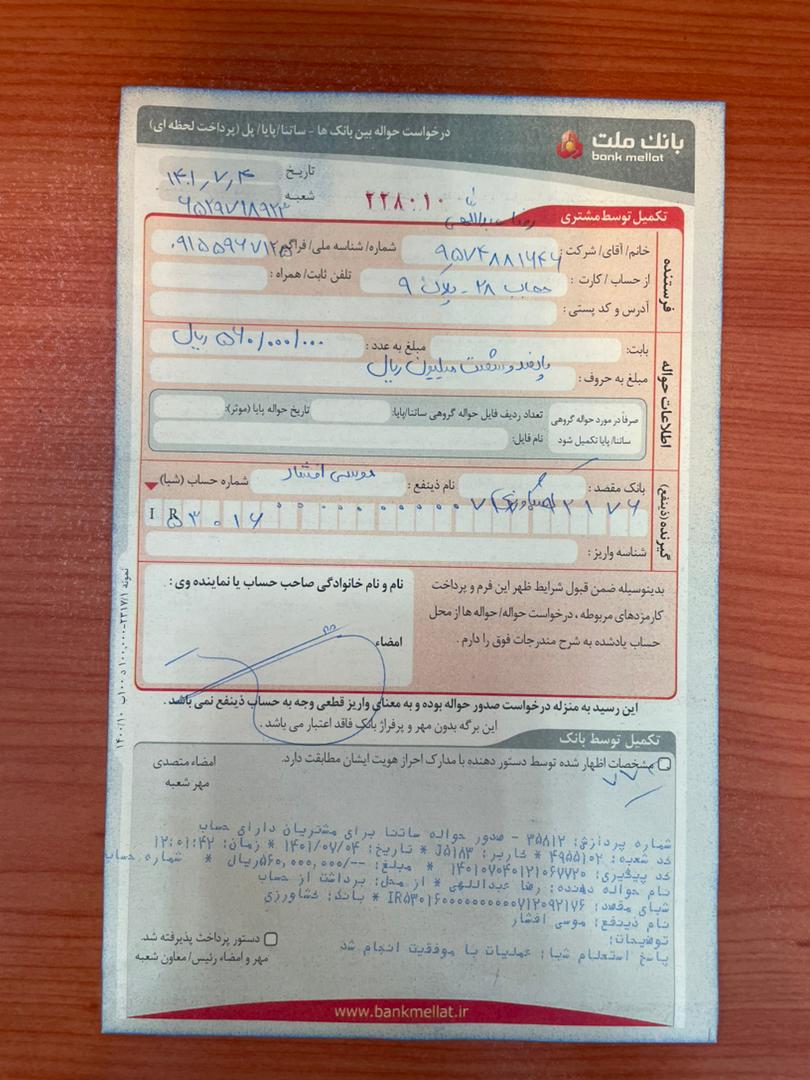 بانک ملت
bank mellat
درخواست حواله بین بانک ها - ساتنا/پایا/ پل (پرداخت لحظه ای)
تاریخ ۱۴۰۱,۷,۴
شعبه
۲۲۸۰۱۰
تکمیل توسط مشتری
فرستنده
خانم/ آقای/ شرکت :
شماره/ شناسه ملی/ فراگیر
از حساب / کارت :
تلفن ثابت/ همراه :
آدرس و کد پستی :
اطلاعات حواله
بابت:
مبلغ به عدد : ۵۶۰/۰۰۰/۰۰۰ ریال
مبلغ به حروف : پانصدو شصت میلیون ریال
صرفاً در مورد حواله گروهی
ساتنا/ پایا تکمیل شود
تعداد ردیف فایل حواله گروهی ساتنا/پایا:
تاریخ حواله پایا (موثر):
نام فایل:
گیرنده (ذینفع)
بانک مقصد : کشاورزی
نام ذینفع : موسی افشار
شماره حساب (شبا)
IR
شناسه واریز :
بدینوسیله ضمن قبول شرایط ظهر این فرم و پرداخت
کارمزدهای مربوطه ، درخواست حواله/ حواله ها از محل
حساب یادشده به شرح مندرجات فوق را دارم .
نام و نام خانوادگی صاحب حساب یا نماینده وی :
امضاء
این رسید به منزله درخواست صدور حواله بوده و به معنای واریز قطعی وجه به حساب ذینفع نمی باشد .
این برگه بدون مهر و پرفراژ بانک فاقد اعتبار می باشد .
تکمیل توسط بانک
مشخصات اظهار شده توسط دستور دهنده با مدارک احراز هویت ایشان مطابقت دارد.
امضاء متصدی
مهر شعبه
شماره پردازش: ۳۵۸۱۲ - صدور حواله ساتنا برای مشتریان دارای حساب
کد شعبه: ۴۹۵۵۱۰۲ * کاربر: J۵۱۸۳ * تاریخ: ۱۴۰۱/۰۷/۰۴ * زمان: ۱۲:۰۱:۴۲
کد پیگیری: ۱۴۰۱۰۷۰۴۰۱۲۱۰۶۷۷۲۰ * مبلغ: --/۵۶۰,۰۰۰,۰۰۰ریال * شماره حساب
نام حواله دهنده: رضا عبداللهی * از محل: برداشت از حساب
شبای مقصد: IR۵۳۰۱۶۰۰۰۰۰۰۰۰۰۰۷۱۲۰۹۲۱۷۶ * بانک: کشاورزی
نام ذینفع: موسی افشار
توضیحات:
پاسخ استعلام شبا: عملیات با موفقیت انجام شد
دستور پرداخت پذیرفته شد.
مهر و امضاء رئیس/ معاون شعبه
www.bankmellat.ir